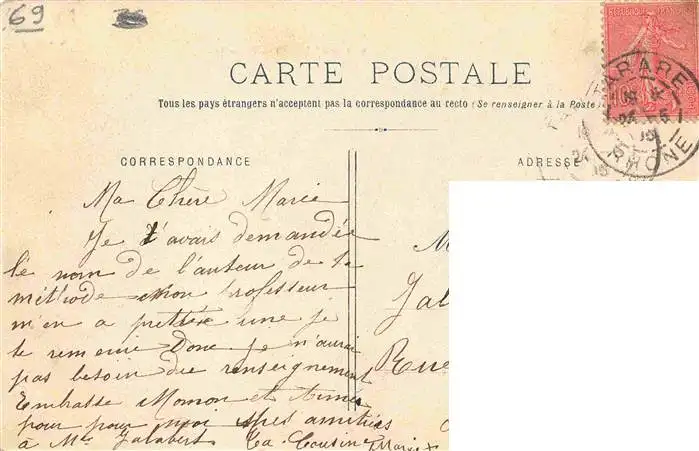 69
CARTE POSTALE
Tous les pays étrangers n'acceptent pas la correspondance au recto (Se renseigner à la Poste)
TARARE
RHONE
CORRESPONDANCE
ADRESSE
Ma Chère Marie
Je t'avais demandée
le nom de l'auteur de ta
méthode mon professeur
m'en a prettée une je
te remercie Donc je n'aurai
pas besoin du renseignement
Embrasse Momon et
pour pour moi mes amitiés
à Mlle Jalabert Ta Cousine Marie
M
Jal
Rue